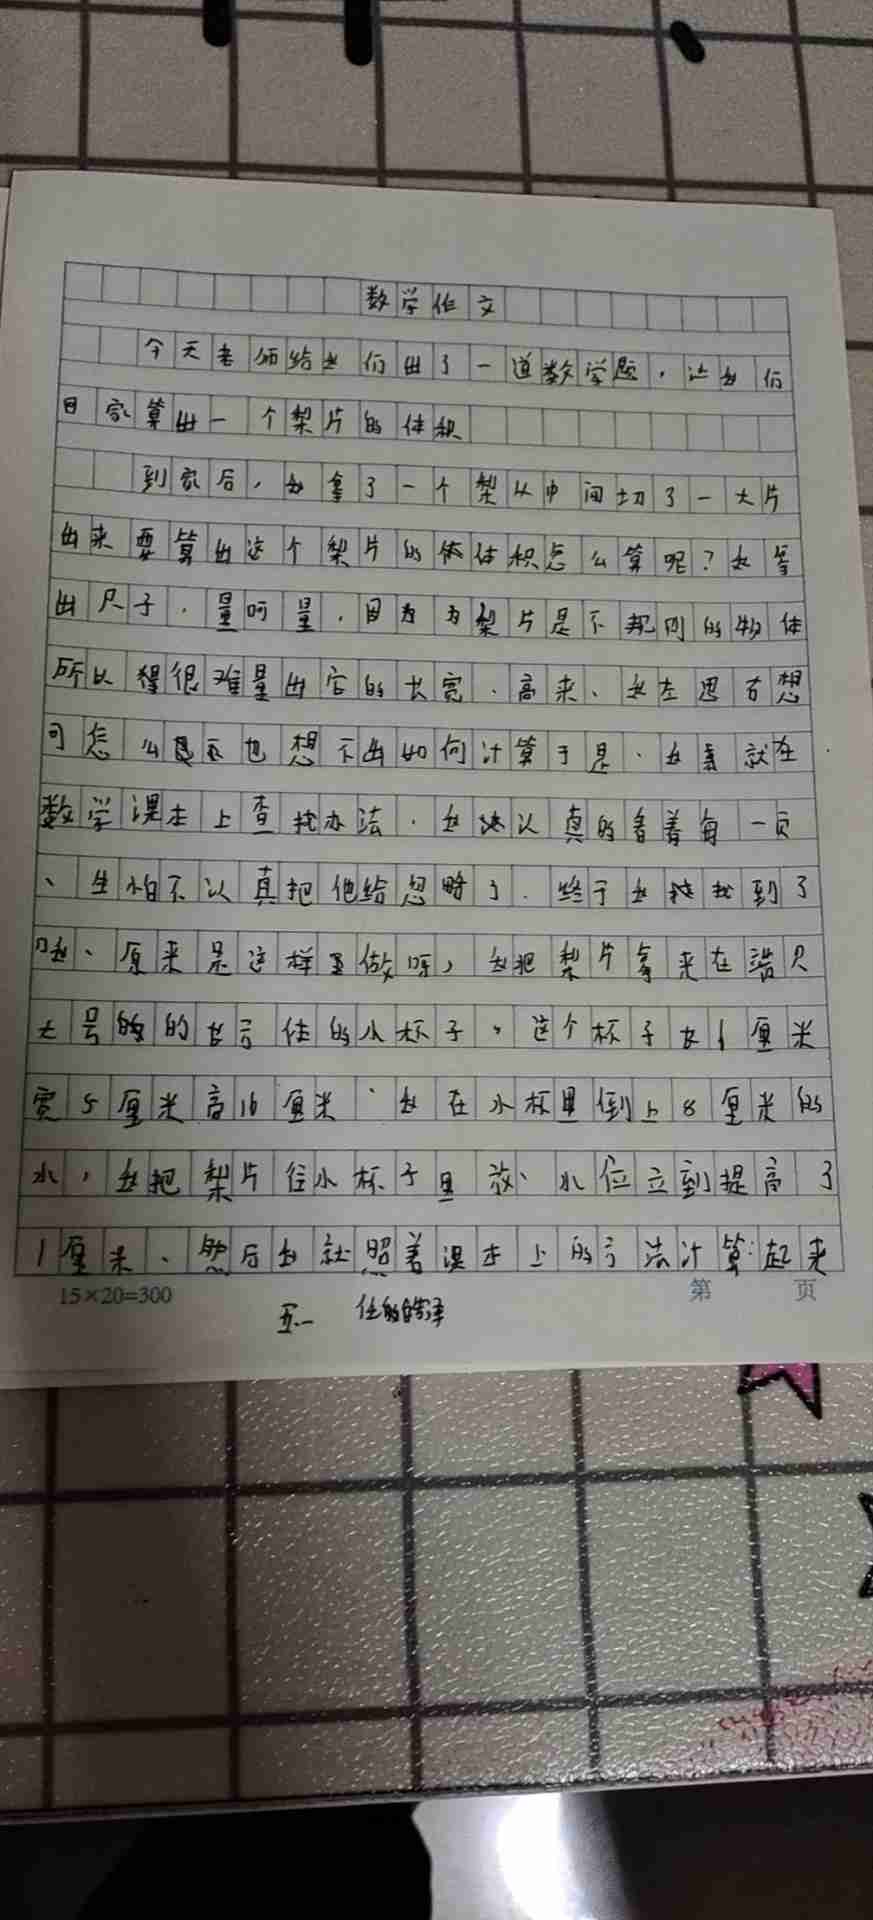 数学作文
今天老师给我们出了一道数学题，让我们
回家算出一个梨片的体积
到家后，我拿了一个梨从中间切了一大片
出来要算出这个梨片的体积怎么算呢？我拿
出尺子，量呵量，因为为梨片是不规则的物体
所以很难量出它的长宽、高来、我左思右想
可怎么也想不出如何计算于是、我就在
数学课本上查找办法，我认真的看着每一页
、生怕不认真把他给忽略了．终于我找到了
哦、原来是这样做呀，我把梨片拿来在
大号的长方体的小杯子，这个杯子长 厘米
宽5厘米高16厘米、我在水杯里倒上8厘米的
水，我把梨片往小杯子里放、水位立到提高了
1厘米、然后我就照着课本上的方法计算：起来
15×20=300 第 页
五.一